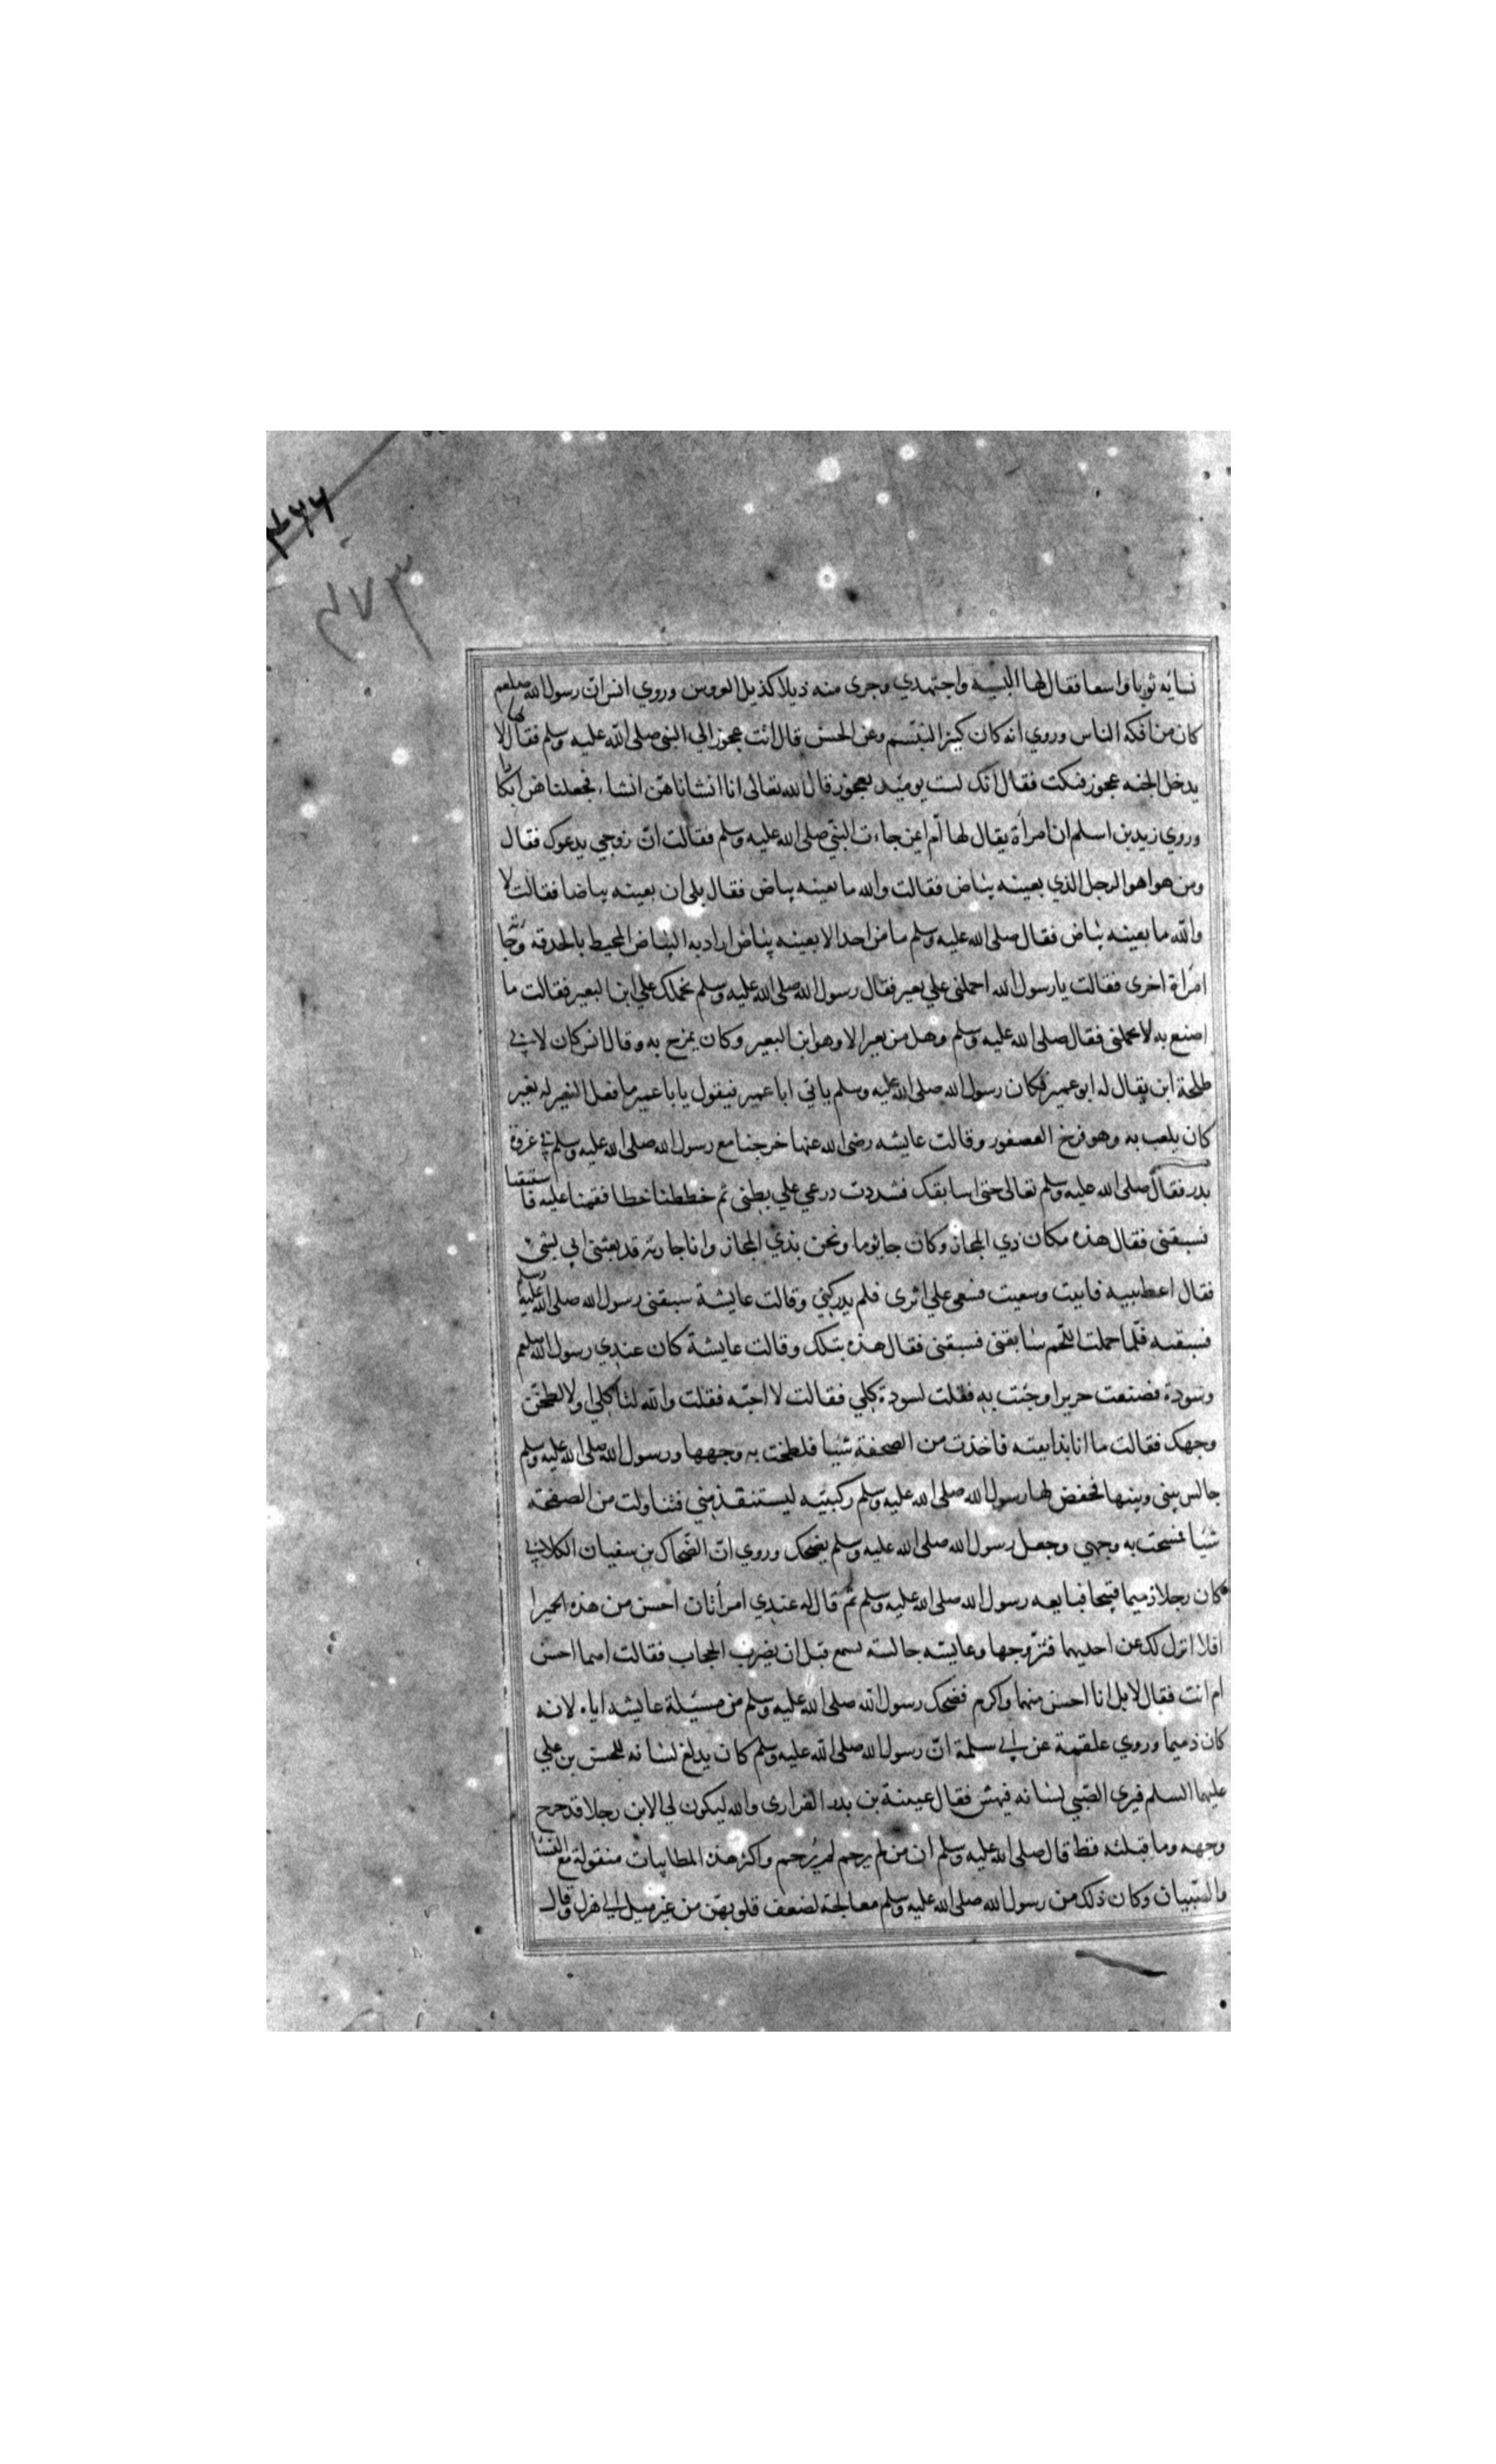 ٤٦٦
٤٧٣
نسايه ثوبا واسعا فقال لها البسيه واجتهدي وجرى منه ذيلا كذيل العروس وروي انس ان رسول الله صلعم
كان من افكه الناس وروي انه كان كثير التبسم وعن الحسن قال اتت عجوز الي النبي صلى الله عليه وسلم فقال لها لا
يدخل الجنه عجوز فبكت فقال انك لست يوميد بعجوز قال الله تعالى انا انشاناهن انشاء فجعلناهن ابكارا
وروي زيد بن اسلم ان امرأة يقال لها ام ايمن جاءت النبي صلى الله عليه وسلم فقالت ان زوجي يدعوك فقال
ومن هو اهو الرجل الذي بعينه بياض فقالت والله ما بعينه بياض فقال بلى ان بعينه بياضا فقالت لا
والله ما بعينه بياض فقال صلى الله عليه وسلم ما من احد الا بعينه بياض اراد به البياض المحيط بالحدقه وجا
امرأة اخرى فقالت يا رسول الله احملني علي بعير فقال رسول الله صلى الله عليه وسلم نحملك علي ابن البعير فقالت ما
اصنع به لا يحملني فقال صلى الله عليه وسلم وهل من بعير الا وهو ابن البعير وكان يمزح به وقال انس كان لابي
طلحة ابن يقال له ابو عمير فكان رسول الله صلى الله عليه وسلم ياتي ابا عمير فيقول يا با عمير ما فعل النغير لنغير
كان يلعب به وهو فرخ العصفور وقالت عايشه رضى الله عنها خرجنا مع رسول الله صلى الله عليه وسلم في غزوة
بدر فقال صلى الله عليه وسلم تعالى حتى اسابقك فشددت درعي علي بطنى ثم خططنا خطا فقمنا عليه فاستبقنا
فسبقنى فقال هذه مكان ذي المجاز وكان جا يوما ونحن بذي المجاز وانا جارية قد بعثنى ابي بشى
فقال اعطينيه فابيت وسعيت فسعى علي اثرى فلم يدركني وقالت عايشة سبقنى رسول الله صلى الله عليه وسلم
فسبقته فلما حملت اللحم سابقنى فسبقنى فقال هذه بتلك وقالت عايشة كان عندي رسول الله صلعم
وسودة فصنعت حريرا وجئت به فقلت لسودة كلي فقالت لا احبه فقلت والله لتاكلي او لالطخن
وجهك فقالت ما انا بذايقته فاخذت من الصحفة شيا فلطخت به وجهها ورسول الله صلى الله عليه وسلم
جالس بينى وبينها فخفض لها رسول الله صلى الله عليه وسلم ركبتيه ليستنقذ مني فتناولت من الصحفه
شيا فمسحت به وجهي وجعل رسول الله صلى الله عليه وسلم يضحك وروي ان الضحاك بن سفيان الكلابي
كان رجلا ذميما قبيحا فبايعه رسول الله صلى الله عليه وسلم ثم قال له عندي امرأتان احسن من هذه الحميرا
افلا انزل لك عن احديهما فتزوجها وعايشه جالسته تسمع قبل ان يضرب الحجاب فقالت اهما احسن
ام انت فقال لا بل انا احسن منهما واكرم فضحك رسول الله صلى الله عليه وسلم من مسئلة عايشه اياه لانه
كان ذميما وروي علقمة عن ابي سلمة ان رسول الله صلى الله عليه وسلم كان يدلع لسانه للحسن بن علي
عليهما السلم فيرى الصبي لسانه فيهش فقال عيينة بن بدر الفزارى والله ليكون لي الابن رجلا قد خرج
وجهه وما قبلته قط قال صلى الله عليه وسلم ان من لم يرحم لم يرحم واكثر هذه المطايبات منقولة مع النسا
والصبيان وكان ذلك من رسول الله صلى الله عليه وسلم معالجة لضعف قلوبهن من غير ميل الي هزل وقال